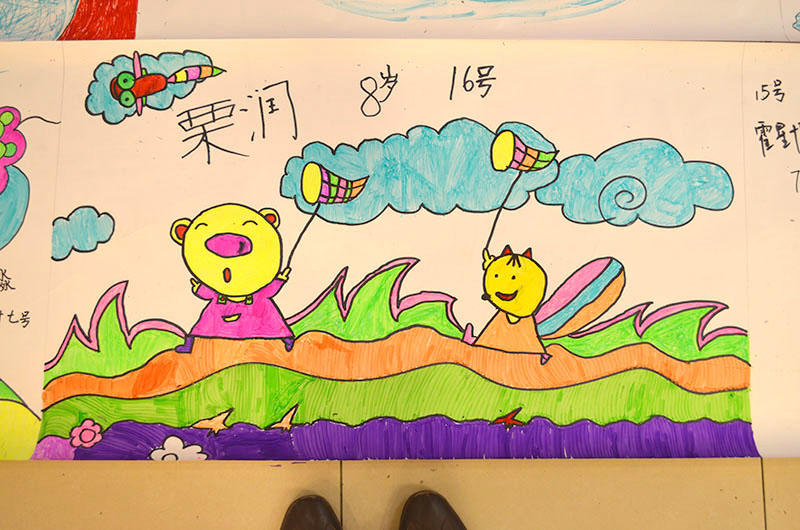 栗润 8岁 16号
15号
霍星
7
十七号